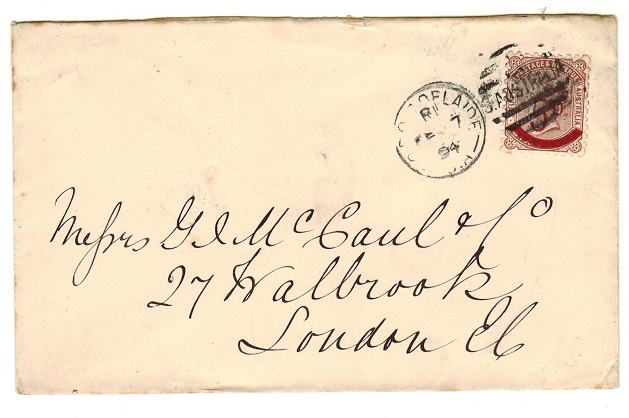 POSTAGE &
AUSTRALIA
S.AUSTRALIA
ADELAIDE
7
94
Messrs G & McCaul & Co
27 Walbrook
London EC